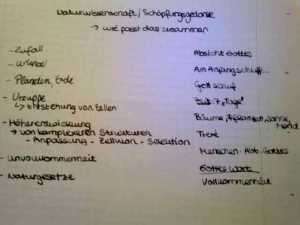 Naturwissenschaft / Schöpfungsgedanke
→ wie passt das zusammen
- Zufall
- Urknall
- Planeten, Erde
- Ursuppe
↳ Entstehung von Zellen
- Höherentwicklung
→ von komplexeren Strukturen
- Anpassung - Zellkern - Selektion
- Unvollkommenheit
- Naturgesetze
Absicht Gottes
Am Anfang schuf...
Gott schuf
7 "Tage"
Bäume, Pflanzen, Sonne,
Mond
Tiere
Menschen - Abb. Gottes
Gottes Werk
Vollkommenheit